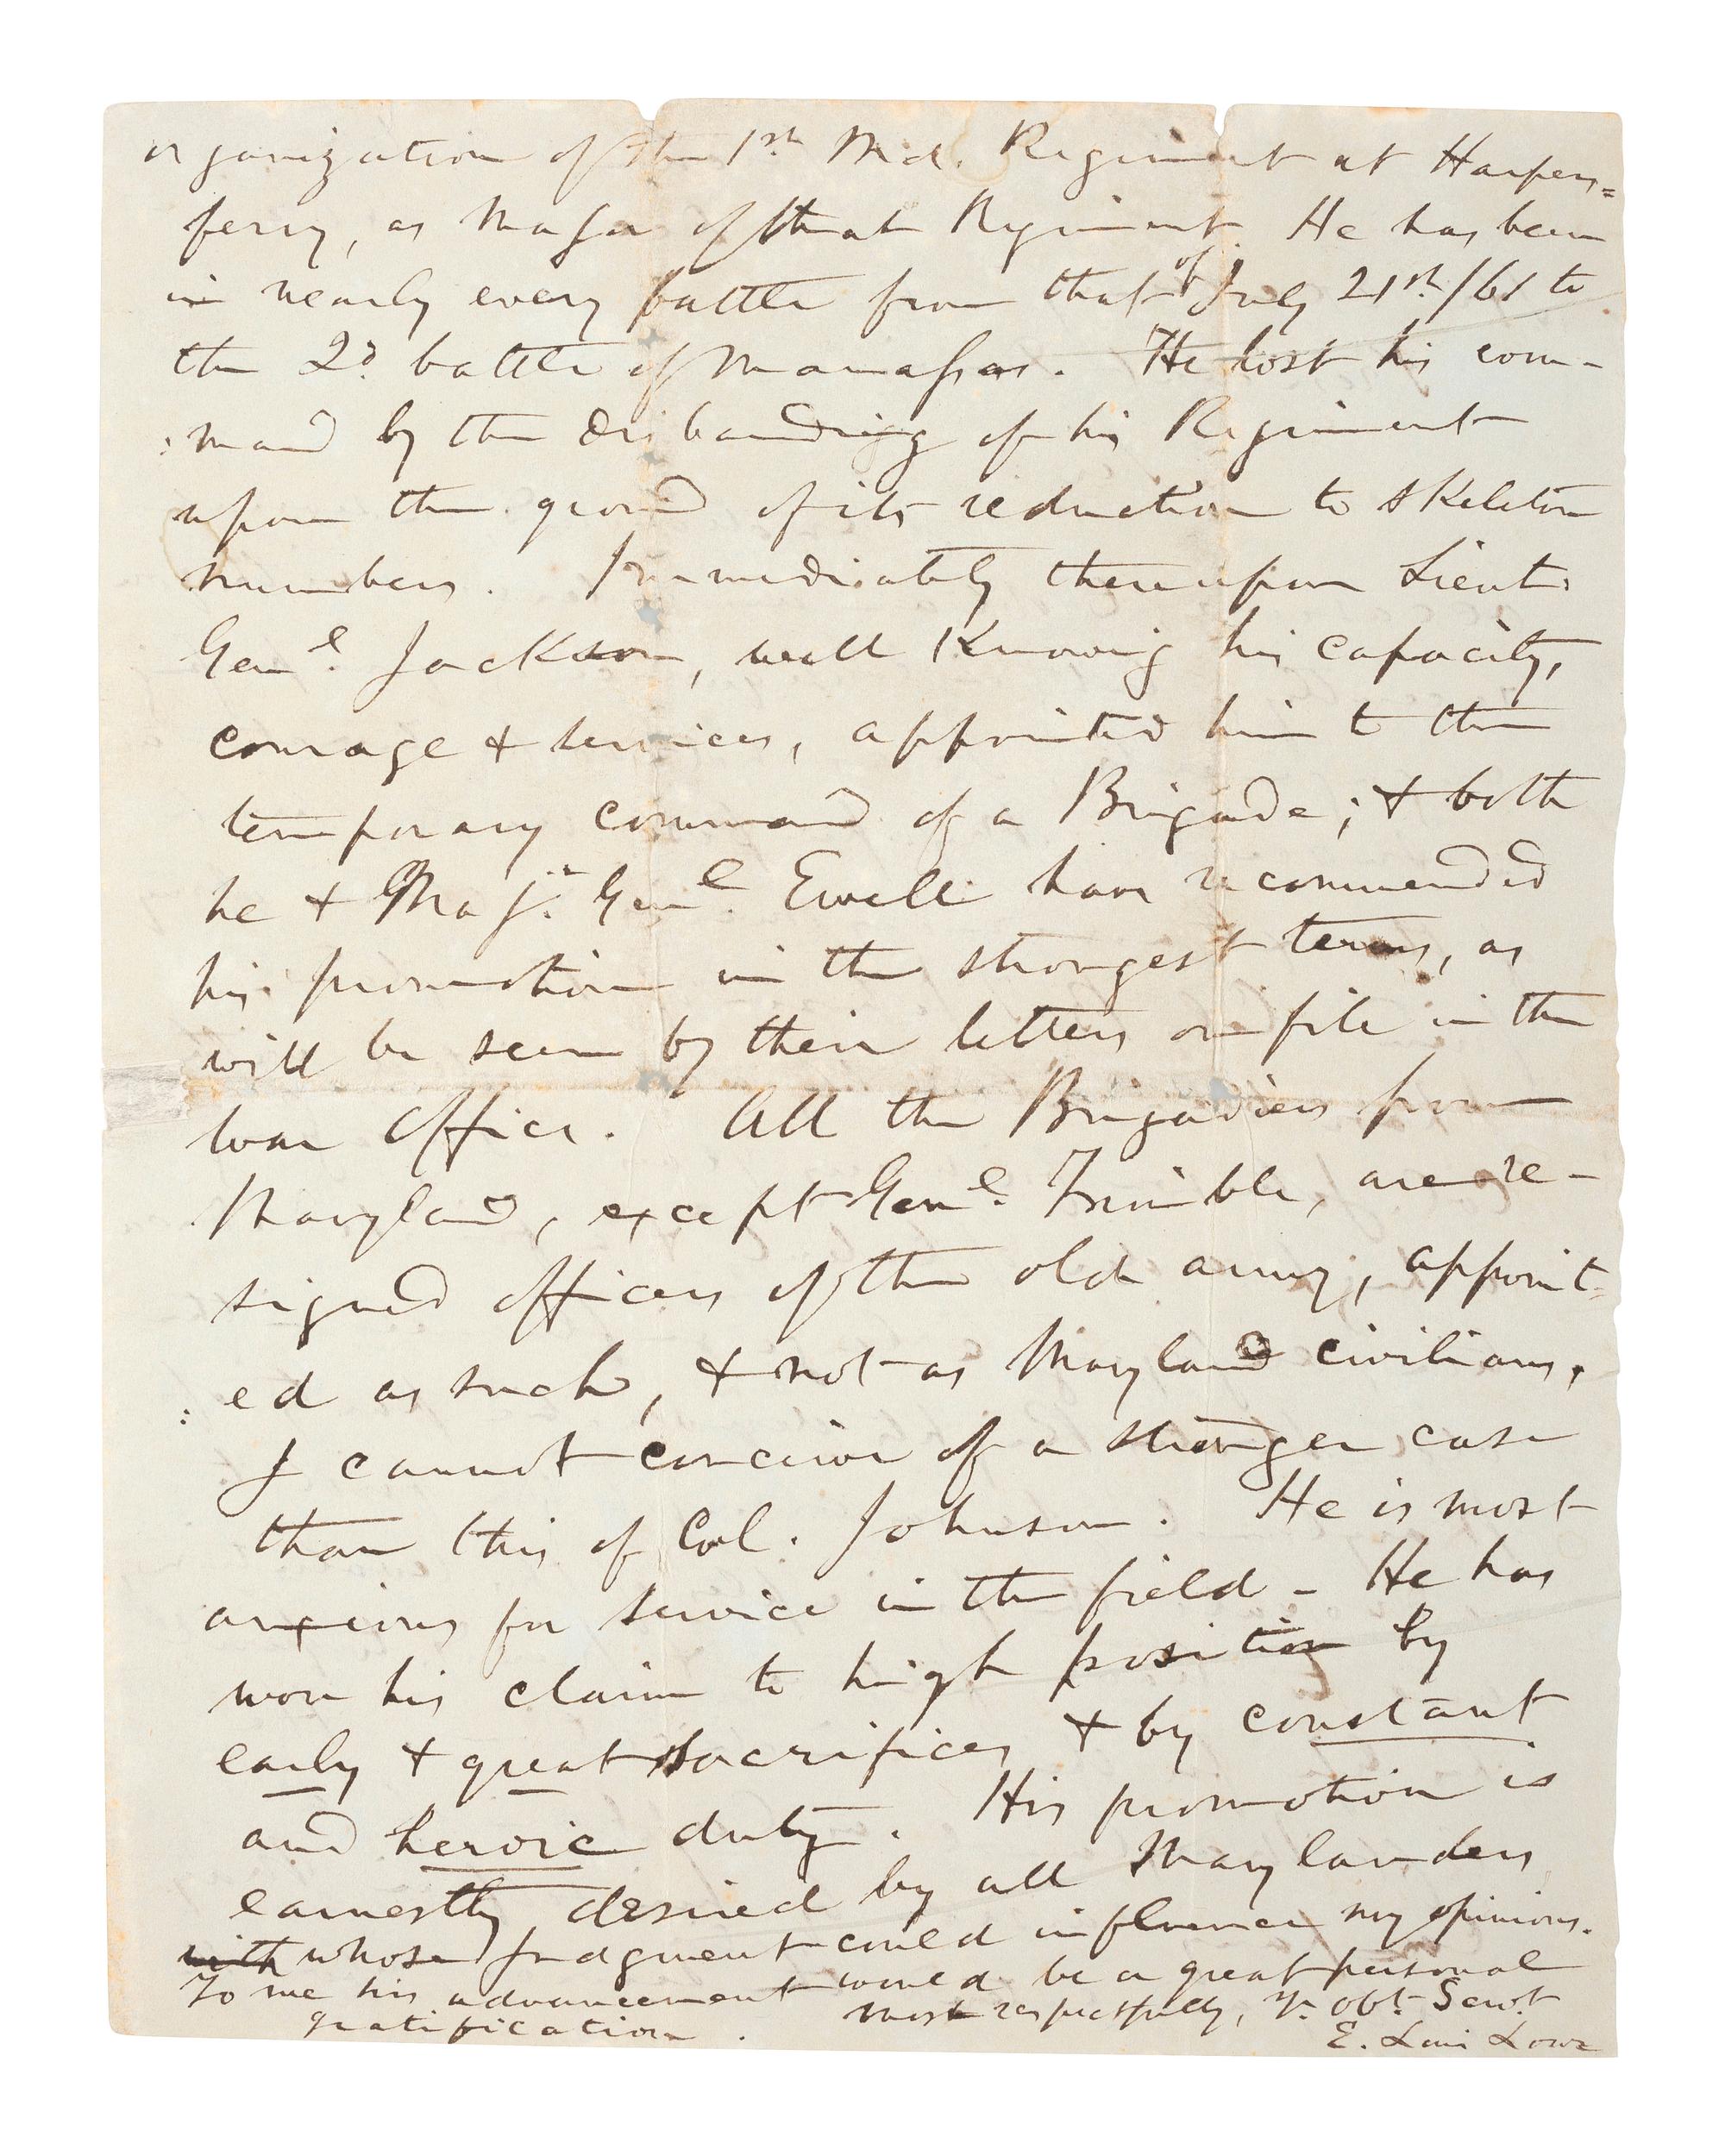 organization of the 1st Md. Regiment at Harpers=
ferry, as Major of that Regiment. He has been
in nearly every battle from that of July 21st/61 to
the 2d battle of Manassas. He lost his com-
:mand by the disbanding of his Regiment
upon the ground of its reduction to skeleton
numbers. Immediately thereupon Lieut.
Genl. Jackson, well knowing his capacity,
courage & services, appointed him to the
temporary command of a Brigade; & both
he & Majr. Genl. Ewell have recommended
his promotion in the strongest terms, as
will be seen by their letters on file in the
War Office. All the Brigadiers from
Maryland, except Genl. Trimble, are re-
signed officers of the old army, appoint-
:ed as such, & not as Maryland civilians.
I cannot conceive of a stronger case
than this of Col. Johnson. He is most
anxious for service in the field - He has
won his claim to high position by
early & great sacrifices & by constant
and heroic duty. His promotion is
earnestly desired by all Marylanders
with whose judgment could influence my opinions.
To me his advancement would be a great personal
gratification. Most respectfully, Yr. obt. Servt.
E. Louis Lowe